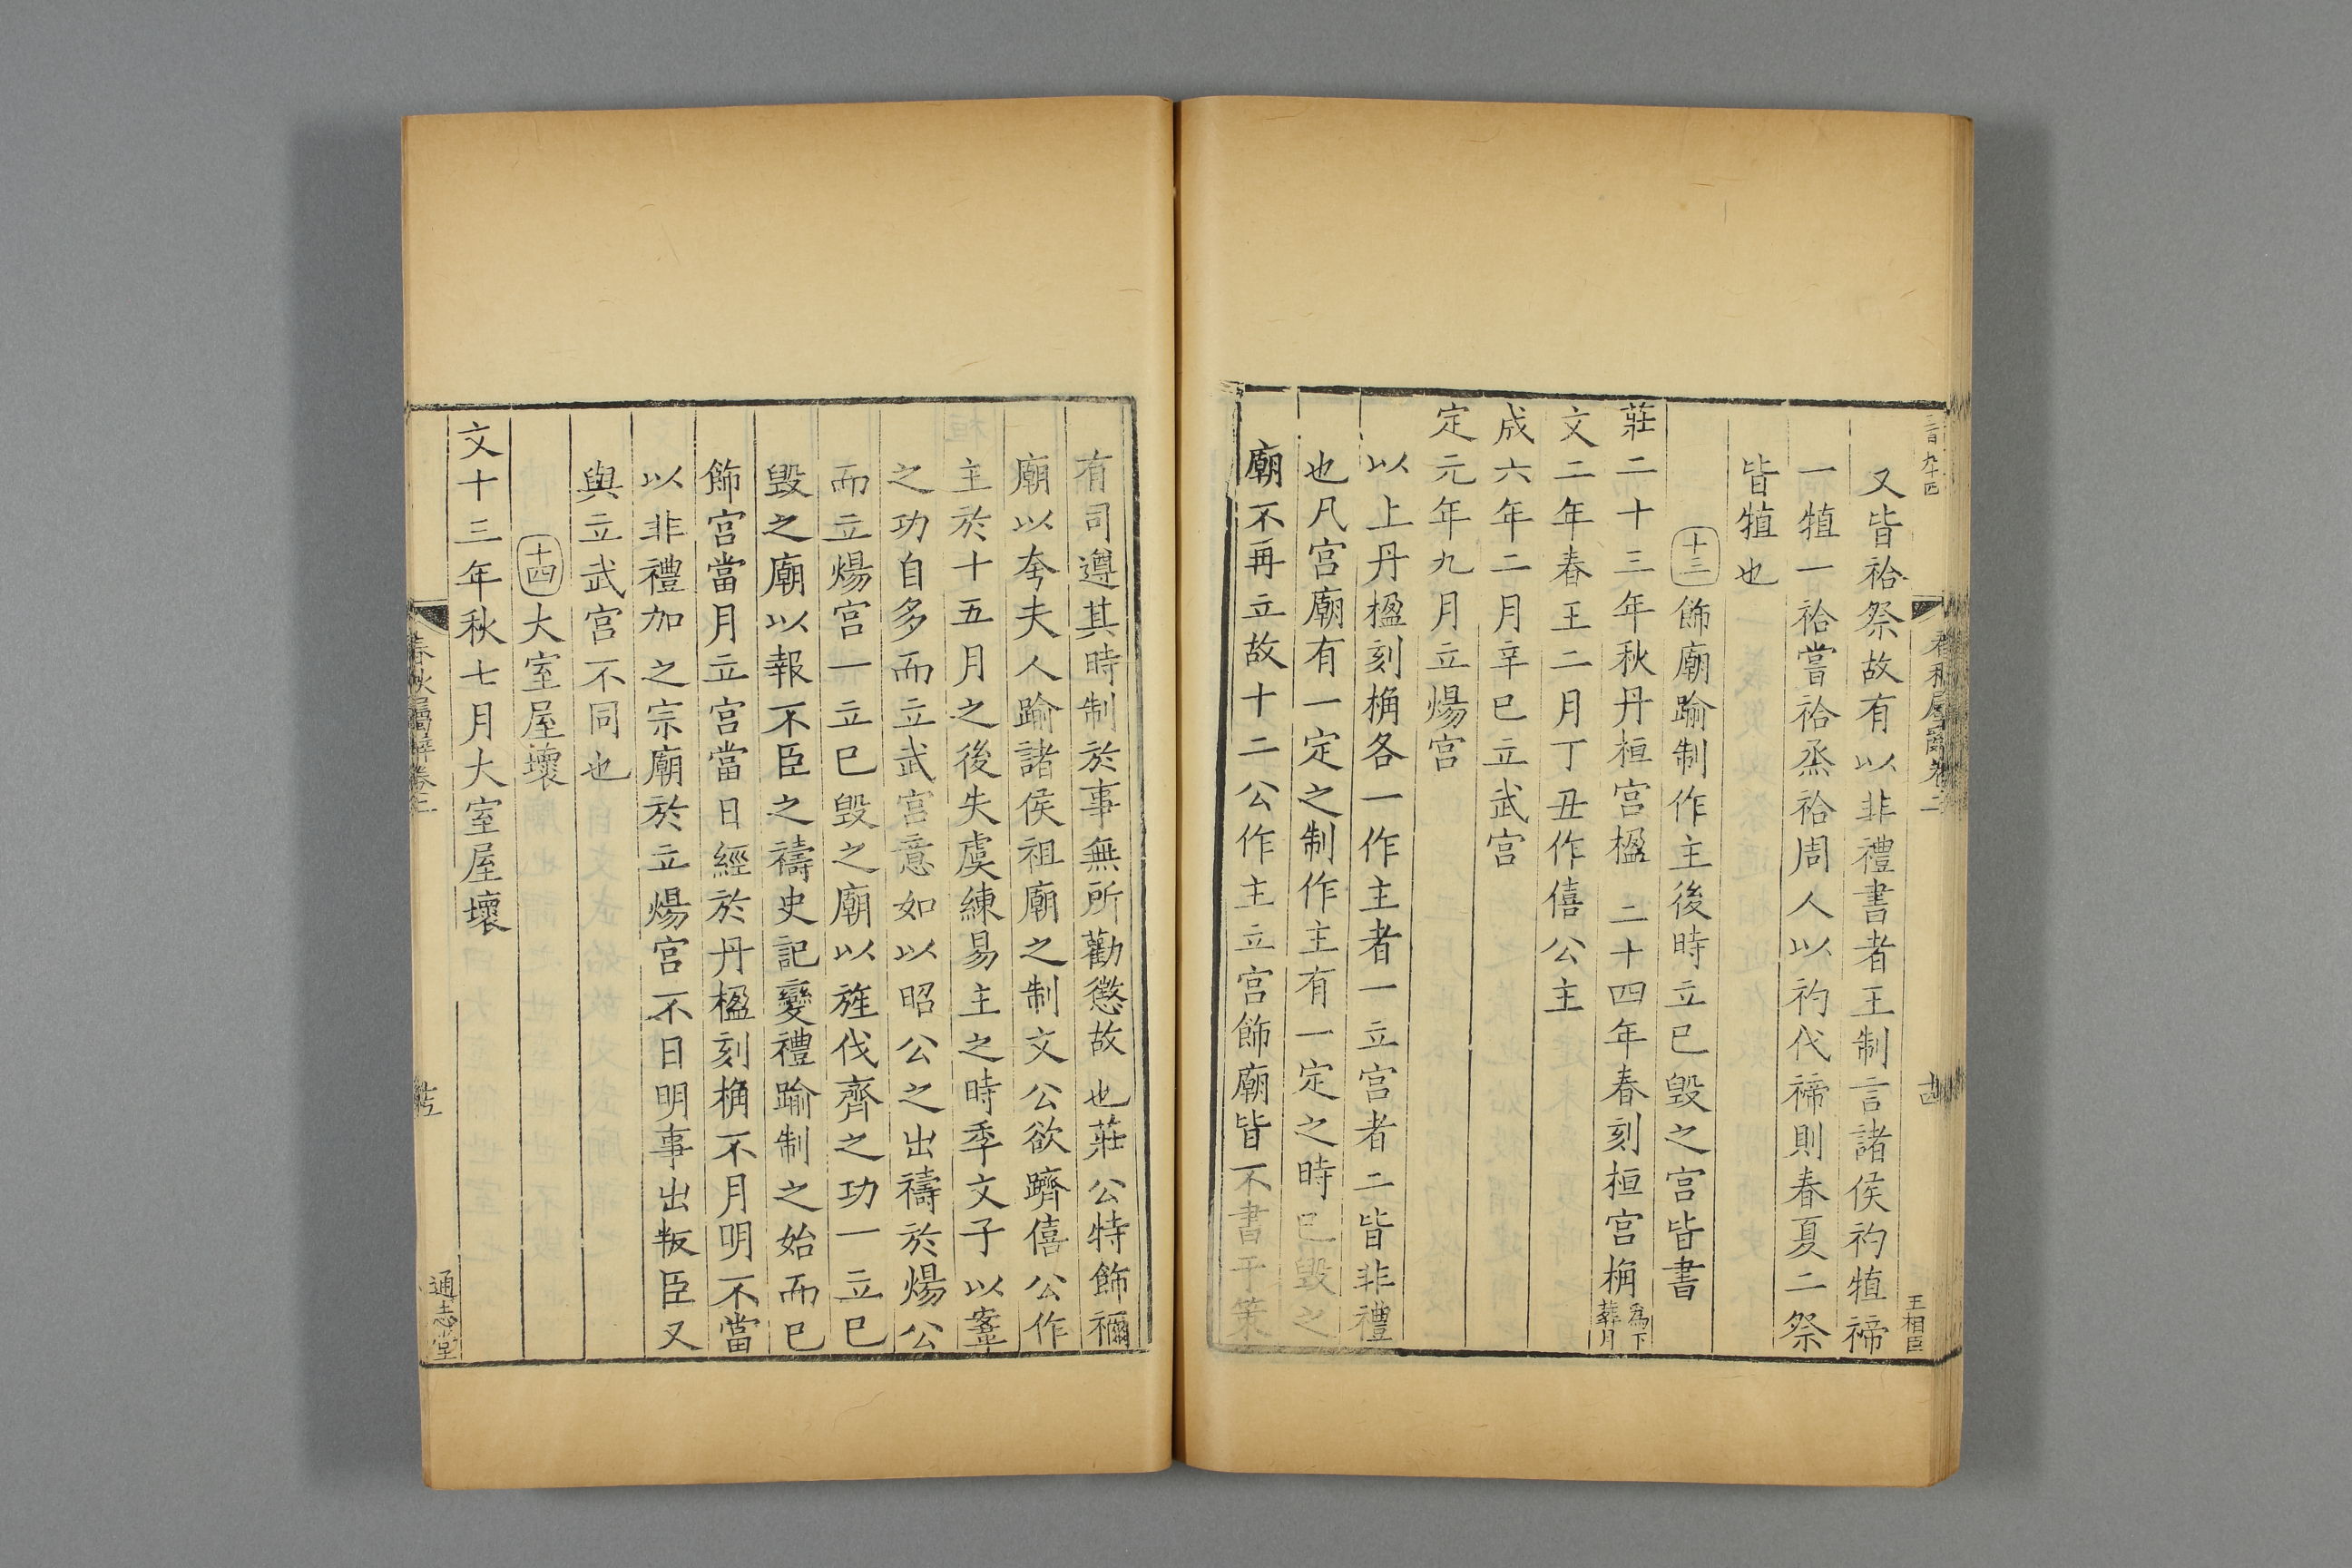 又皆祫祭故有以非禮書者王制言諸侯礿犆禘
一犆一祫嘗祫烝祫周人以礿代禘則春夏二祭
皆犆也
十三飾廟踰制作主後時立已毀之宮皆書
莊二十三年秋丹桓宮楹 二十四年春刻桓宮桷為下葬月
文二年春王二月丁丑作僖公主
成六年二月辛巳立武宮
定元年九月立煬宮
以上丹楹刻桷各一作主者一立宮者二皆非禮
也凡宮廟有一定之制作主有一定之時已毀之
廟不再立故十二公作主立宮飾廟皆不書于策
王相臣
有司遵其時制於事無所勸懲故也莊公特飾禰
廟以夸夫人踰諸侯祖廟之制文公欲躋僖公作
主於十五月之後失虞練易主之時季文子以鞌
之功自多而立武宮意如以昭公之出禱於煬公
而立煬宮一立已毀之廟以旌伐齊之功一立已
毀之廟以報不臣之禱史記變禮踰制之始而已
飾宮當月立宮當日經於丹楹刻桷不月明不當
以非禮加之宗廟於立煬宮不日明事出叛臣又
與立武宮不同也
十四大室屋壞
文十三年秋七月大室屋壞
春秋屬辭卷二
通志堂